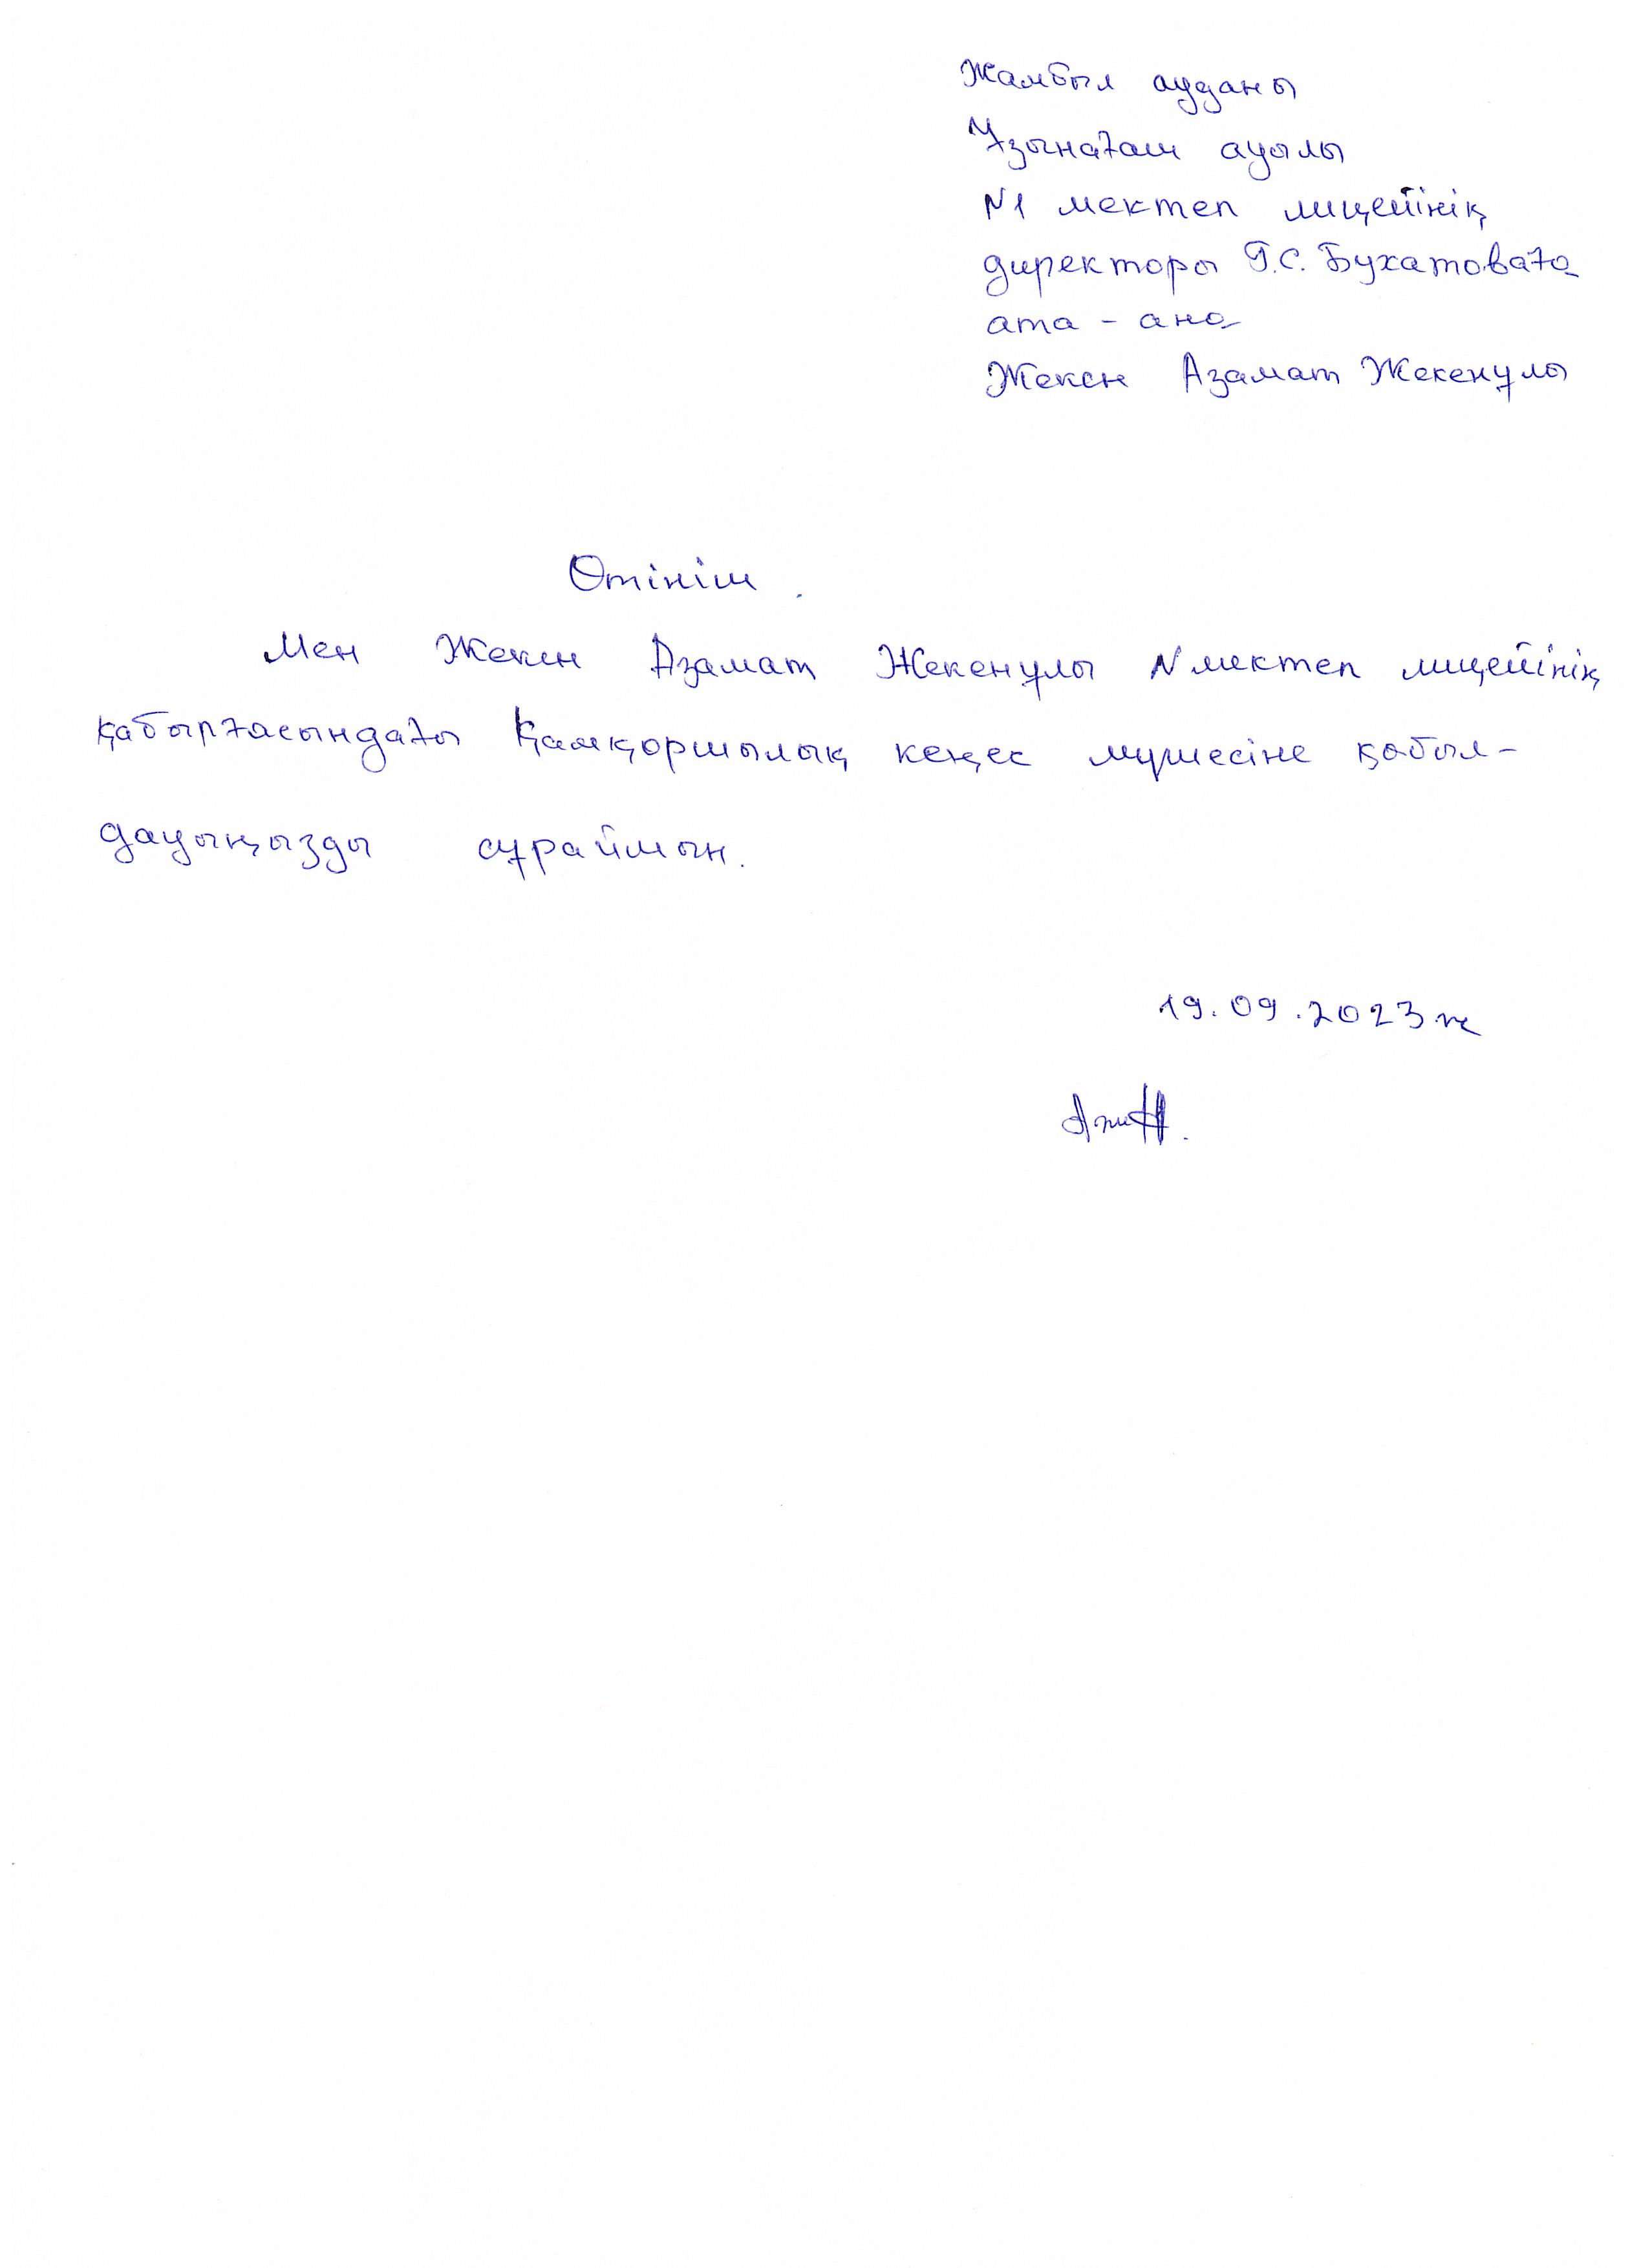 Жамбыл ауданы
Ұзынағаш ауылы
N1 мектеп лицейінің
директоры Г.С. Бухатоваға
ата - ана
Жекен Азамат Жекенұлы
Өтініш.
Мен Жекен Азамат Жекенұлы N мектеп лицейінің
қабырғасындағы Қамқоршылық кеңес мүшесіне қабыл-
дауыңызды сұраймын.
19.09.2023 ж